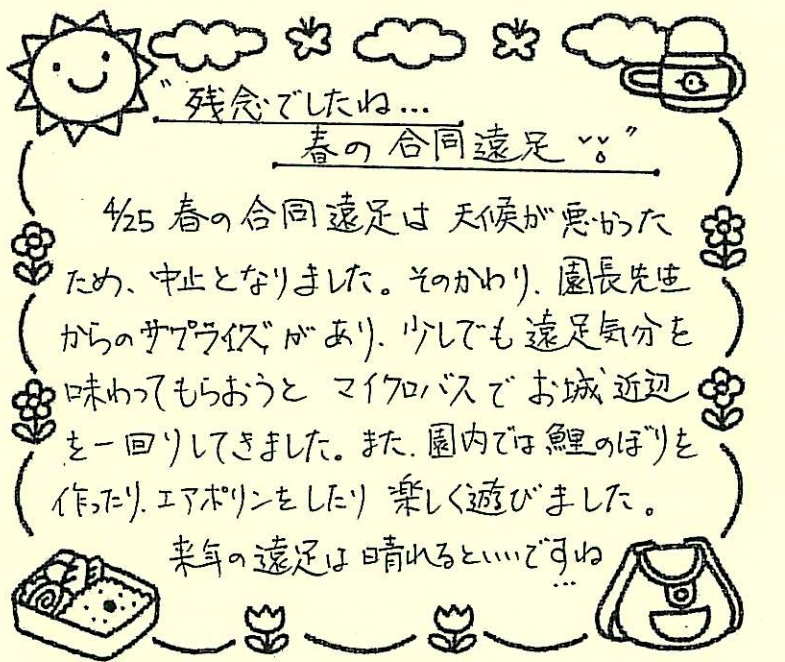 "残念でしたね…
春の合同遠足"
4/25 春の合同遠足は 天候が悪かった
ため、中止となりました。そのかわり、園長先生
からのサプライズがあり、少しでも遠足気分を
味わってもらおうと マイクロバスで お城近辺
を一回りしてきました。また、園内では鯉のぼりを
作ったり、エアポリンをしたり 楽しく遊びました。
来年の遠足は晴れるといいですね…